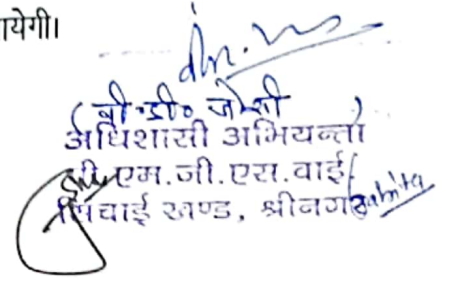 ायेगी।
(बी० डी० जोशी)
अधिशासी अभियन्ता
पी.एम.जी.एस.वाई.
सिंचाई खण्ड, श्रीनगर